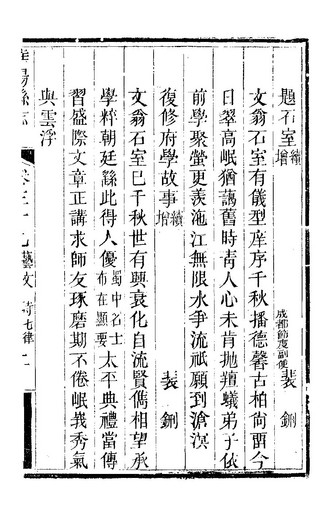 題石室續增　成都節度副使裴鉶
文翁石室有儀型庠序千秋播德馨古柏尚畱今
日翠高岷猶藹舊時靑人心未肯拋羶蟻弟子依
前學聚螢更羨沲江無限水爭流祗願到滄溟
復修府學故事續增　裴鉶
文翁石室已千秋世有興衰化自流賢儁相望承
學粹朝廷繇此得人優蜀中名士布在顯要太平典禮當傳
習盛際文章正講求師友琢磨期不倦岷峩秀氣
與雲浮
陽縣志
卷三十九藝文　詩七律